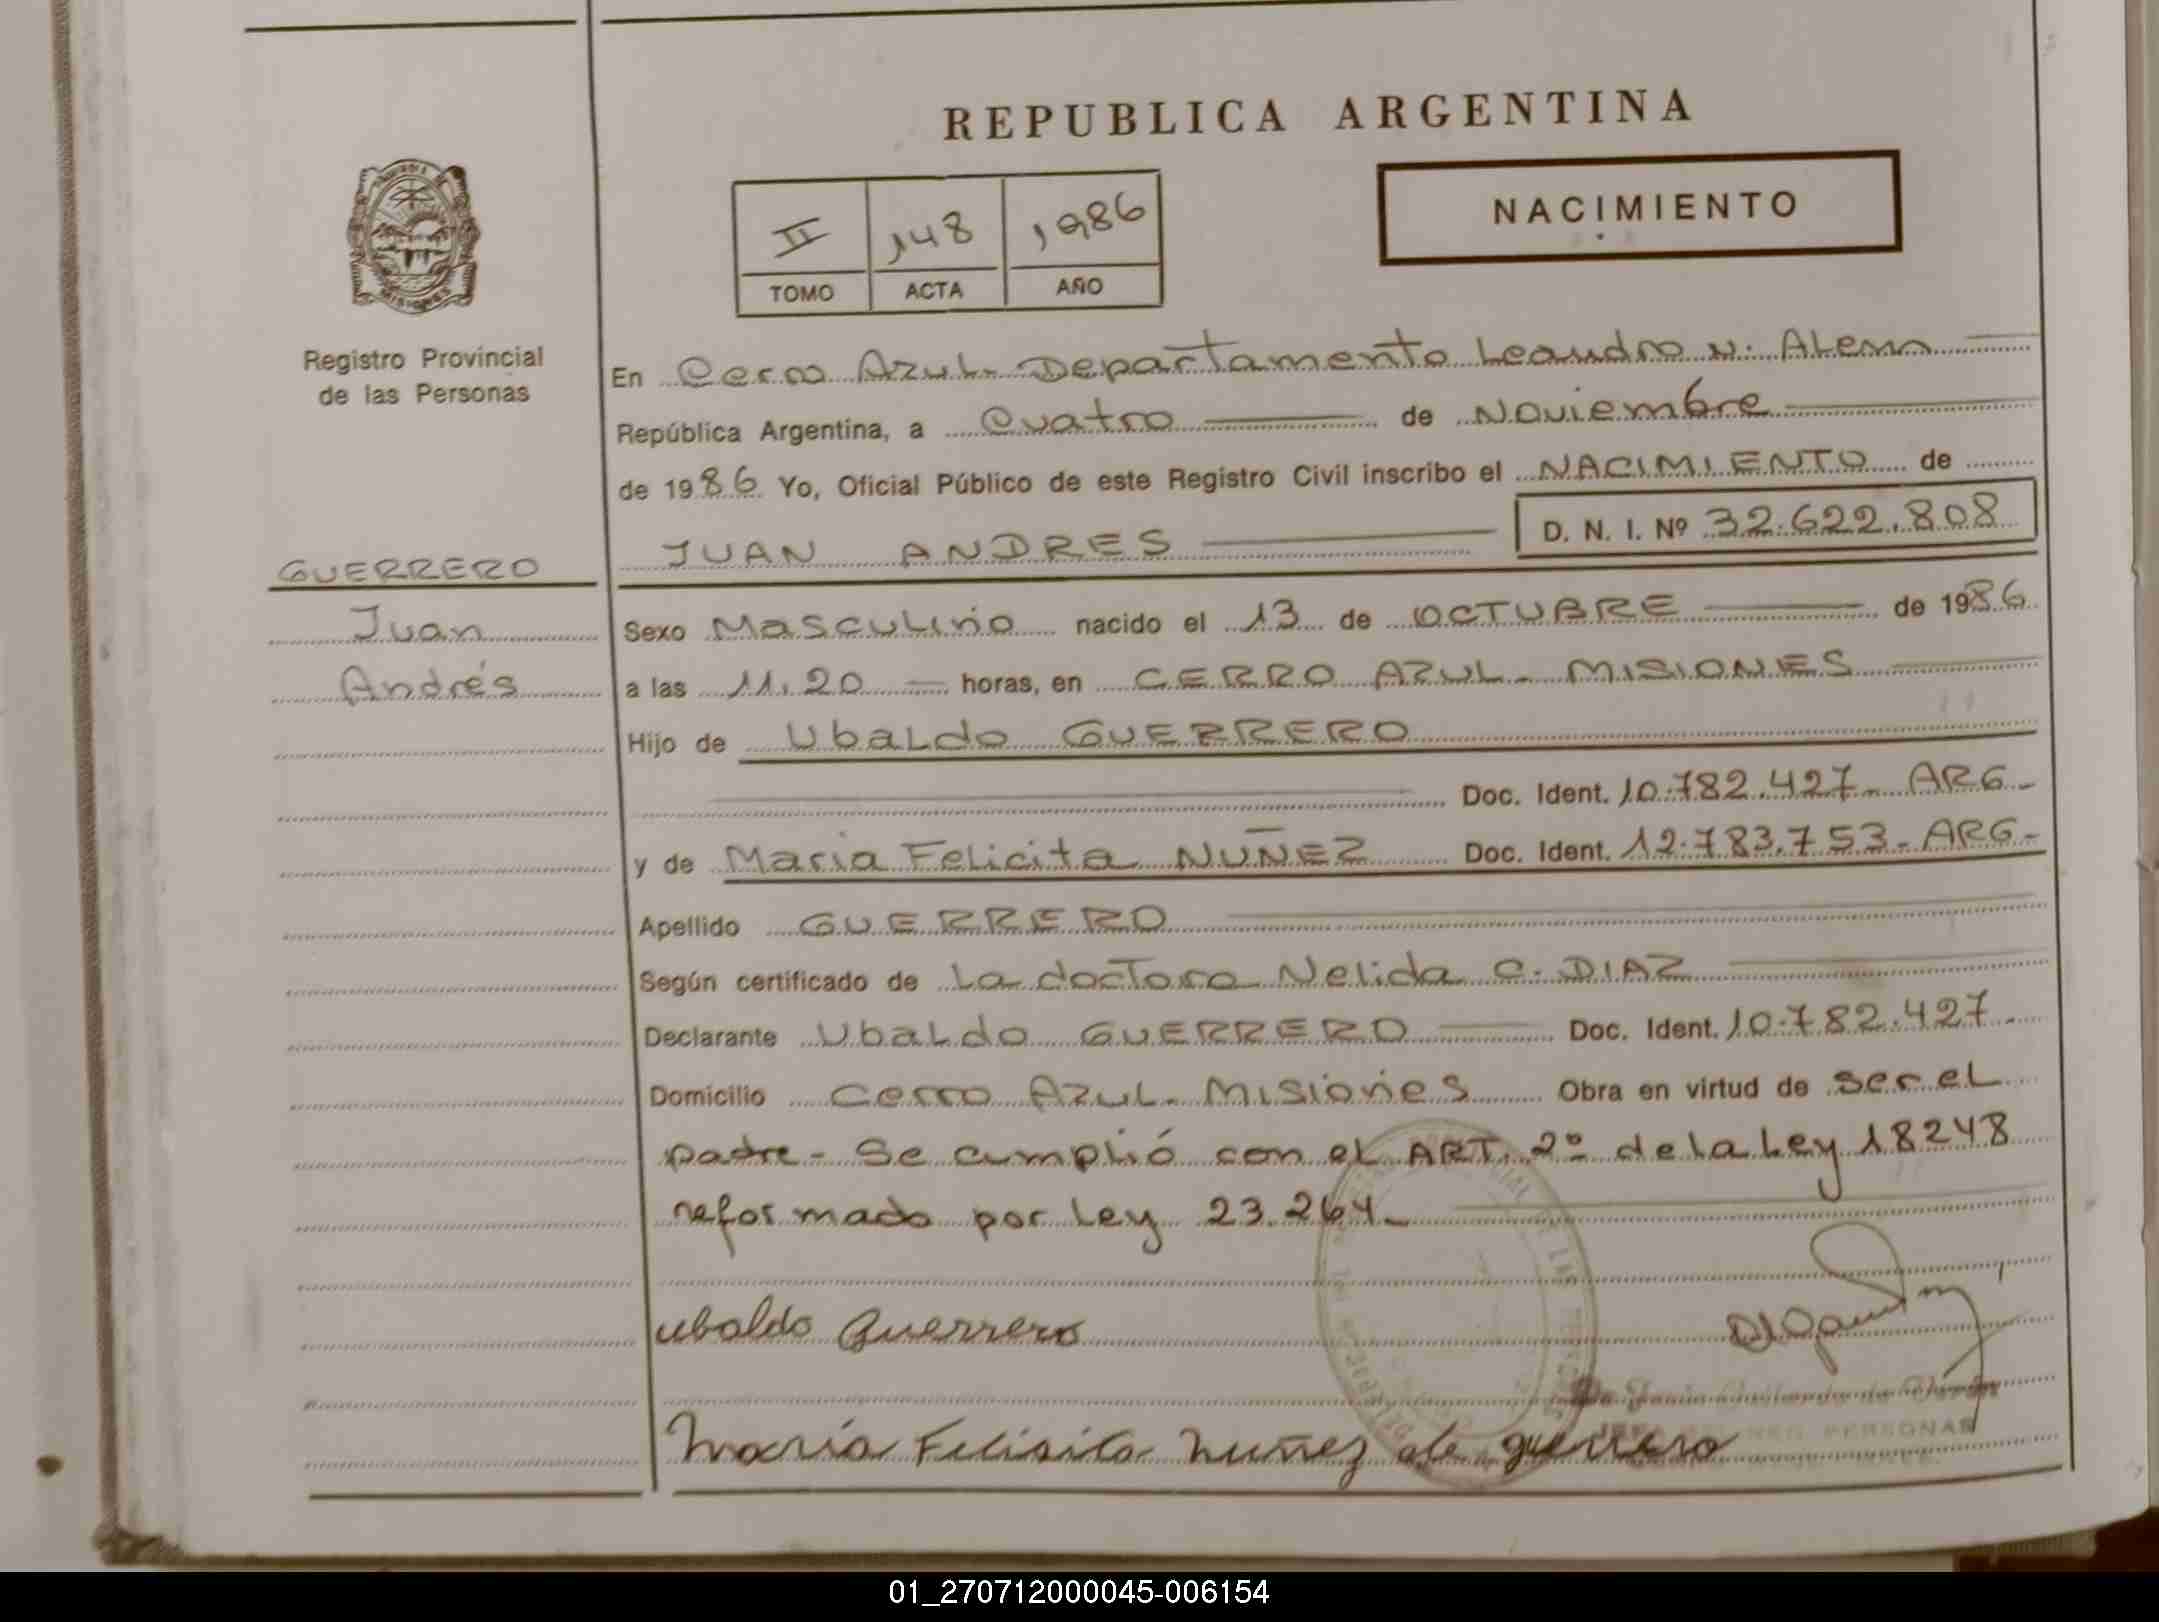 REPUBLICA ARGENTINA
NACIMIENTO
II 148 1986
TOMO ACTA AÑO
MISIONES
Registro Provincial
de las Personas
GUERRERO
Juan
Andrés
En Cerro Azul - Departamento Leandro N. Alem
República Argentina, a Cuatro de Noviembre
de 1986 Yo, Oficial Público de este Registro Civil inscribo el NACIMIENTO de
JUAN ANDRES D. N. I. Nº 32.622.808
Sexo Masculino nacido el 13 de OCTUBRE de 1986
a las 11.20 horas, en CERRO AZUL - MISIONES
Hijo de Ubaldo GUERRERO
Doc. Ident. 10.782.427 - ARG -
y de Maria Felicita NUÑEZ Doc. Ident. 12.783.753 - ARG -
Apellido GUERRERO
Según certificado de La doctora Nelida C. DIAZ
Declarante Ubaldo GUERRERO Doc. Ident. 10.782.427 -
Domicilio Cerro Azul - Misiones Obra en virtud de ser el
padre - Se cumplió con el ART. 2º de la Ley 18248
reformado por Ley 23.264 -
ubaldo Guerrero
PERSONAS
María Felisita Nuñez de guerrero
01_270712000045-006154